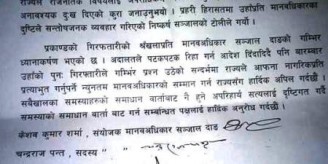 अनावश्यक दुःख दिएको कुरा जनाउनुभयो । प्रहरी हिरासतमा उहाँप्रति मानवअधिकारका
दृष्टिले सन्तोषजनक व्यवहार गरिएको निष्कर्ष सञ्जालको टोलीले गर्यो ।
प्रकाण्डको गिरफ्तारीको श्रृंखलाप्रति मानवअधिकार सञ्जाल दाङको गम्भिर
ध्यानाकर्षण भएको छ । अदालतले पटकपटक रिहा गर्न आदेश दिंदादिंदै पनि बारम्बार
उहाँको पुनः गिरफ्तारीले गम्भिर प्रश्न उठेको सन्दर्भमा राज्यले आफना नागरिकप्रति
प्रत्याभुत गर्नुपर्ने न्युनतम मानवअधिकारको सम्मान गर्न राज्यसंग हार्दिक अपिल गर्दछौ ।
सबैखालका समस्याहरुको समाधान वार्ताबाट नै हुने अपरिहार्य सत्यलाई दृष्टिगत गर्दै
समस्याको समाधान वार्ता बाट गर्न सम्बन्धित पक्षलाई हार्दिक अनुरोध गर्दछौ ।
केशव कुमार शर्मा , संयोजक मानवअधिकार सञ्जाल दाङ
चन्द्रराज पन्त , सदस्य " "